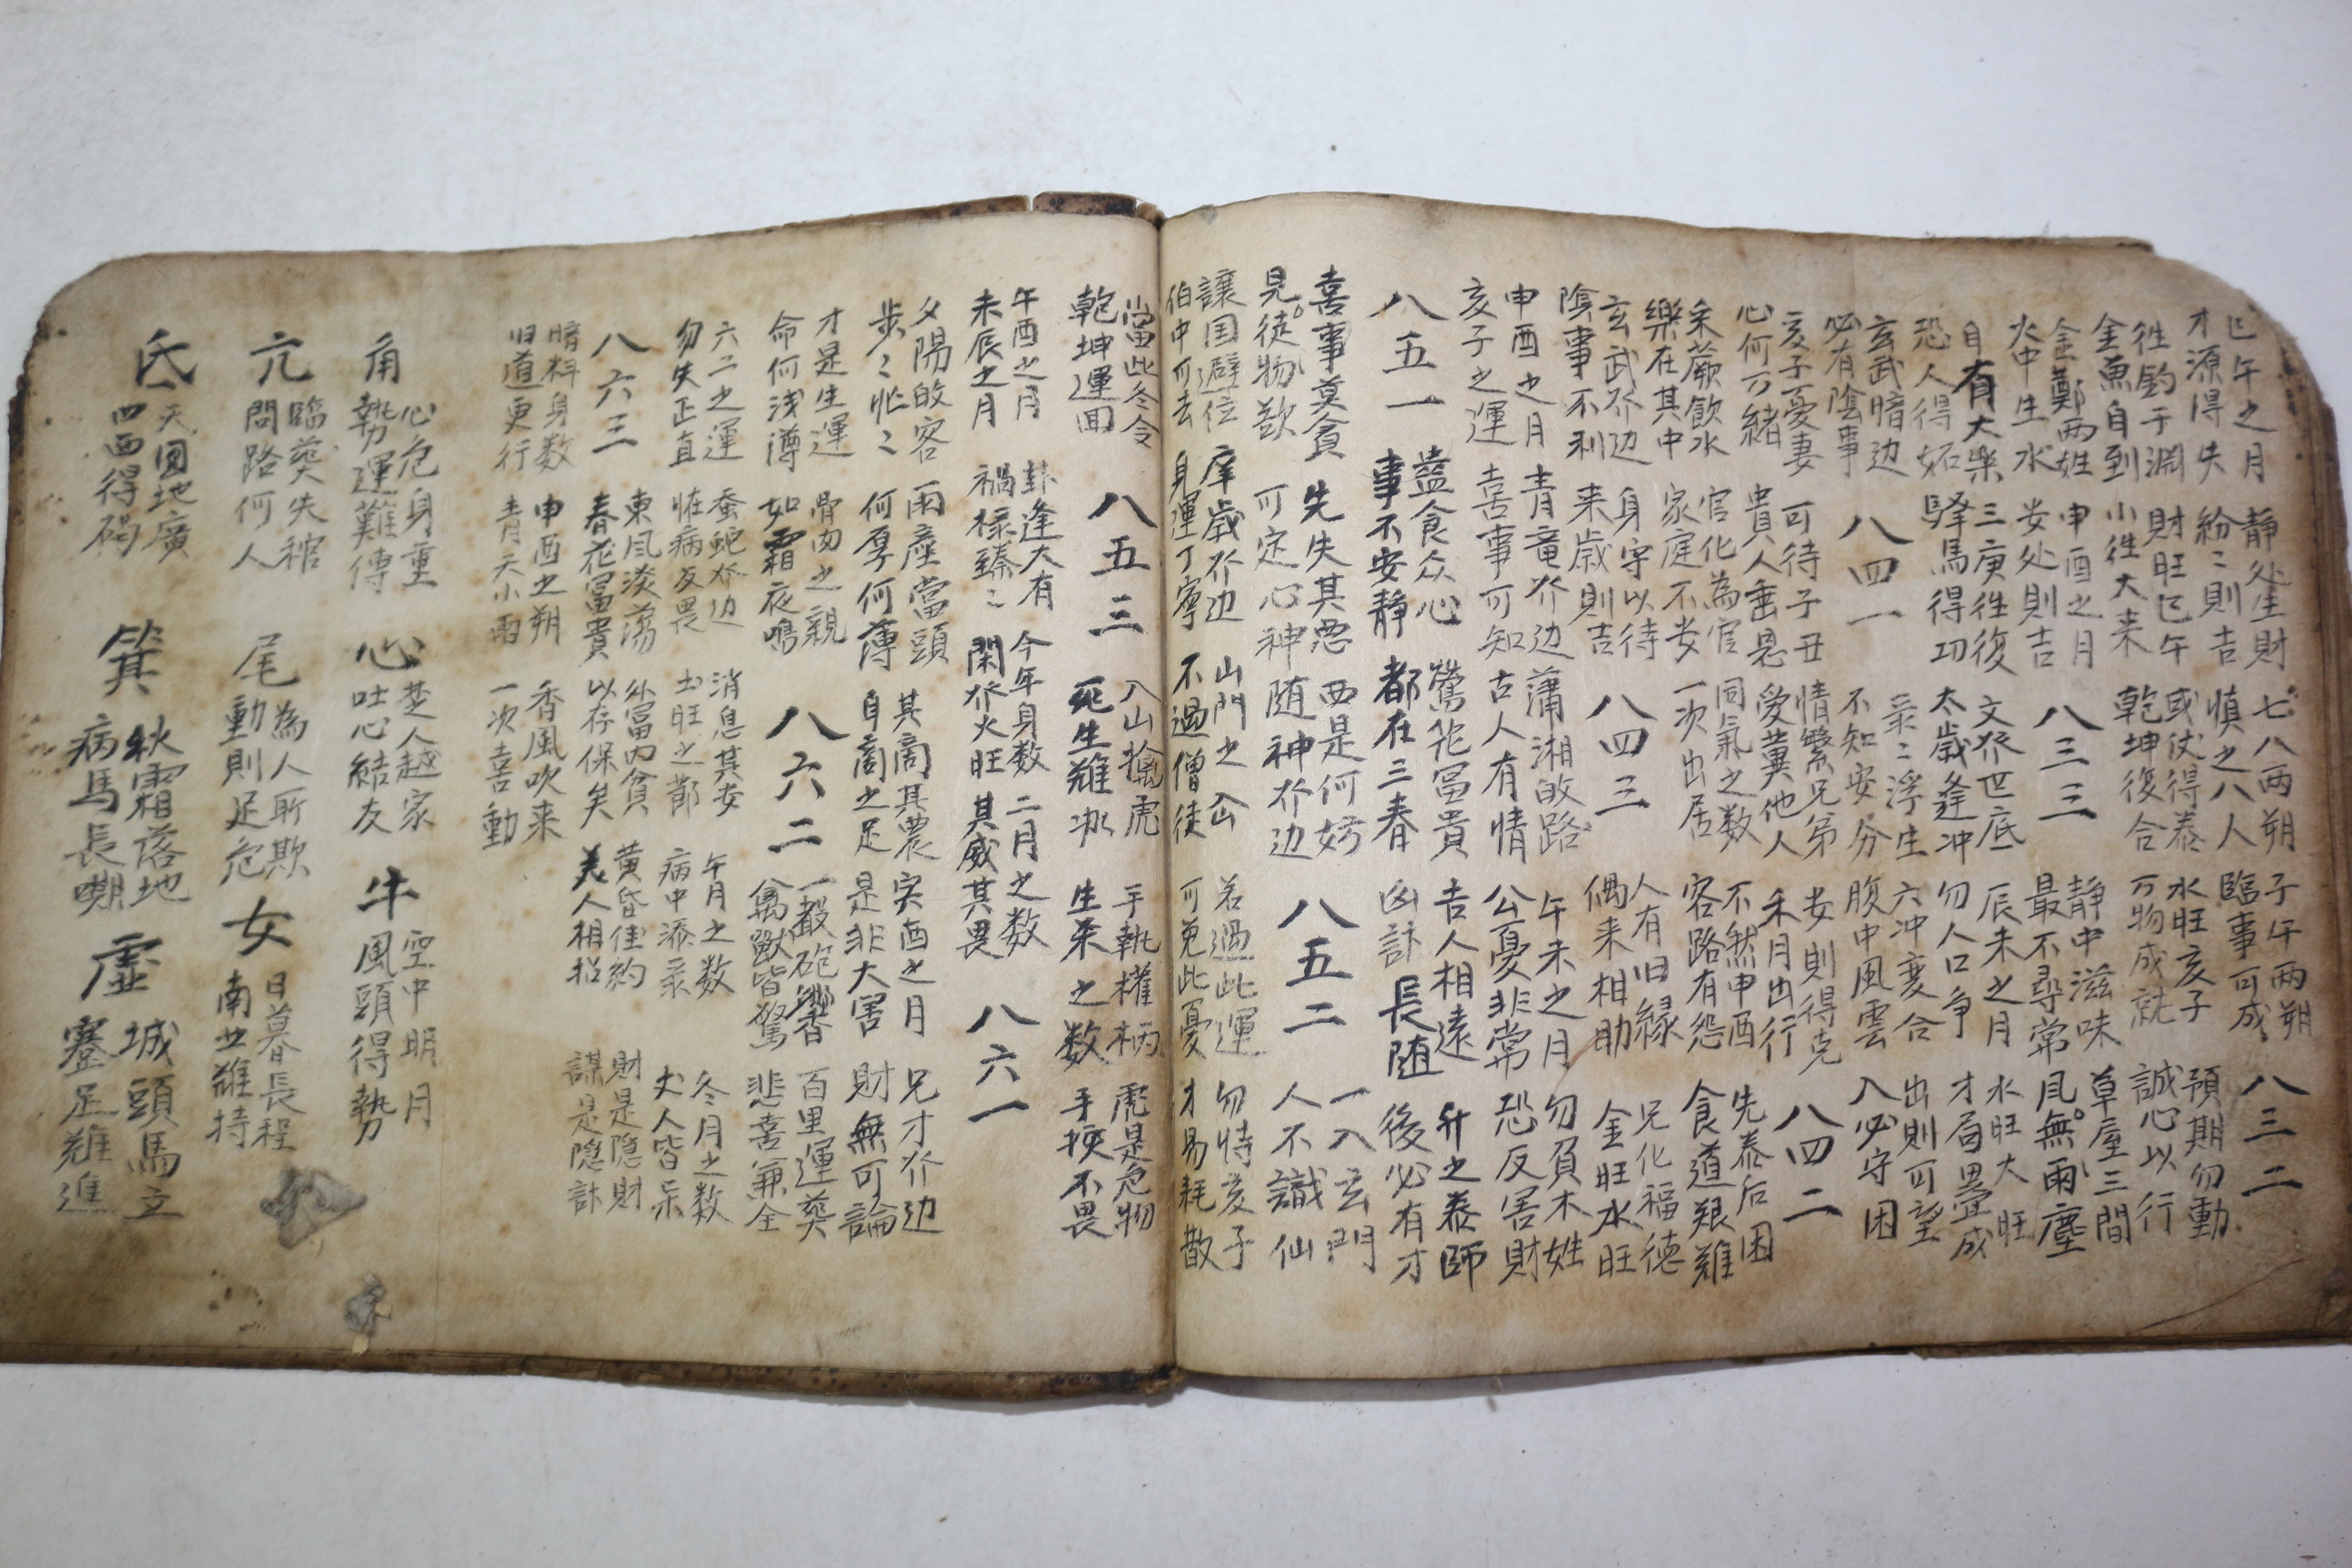 巳午之月
才源得失
靜处生財
紛〻則吉
七八两朔
慎之八人
子午两朔
臨事可成
八三二
徃釣于淵
金魚自到
財旺巳午
小徃大来
或仗得泰
乾坤復合
水旺亥子
万物成就
預期勿動
誠心以行
金鄭两姓
火中生水
申酉之月
安处則吉
八三三
静中滋味
最不尋常
草屋三間
風無雨塵
自有大樂
恐人得妬
三庚徃復
驛馬得功
文㐱世底
太歲逢冲
辰未之月
勿人口争
水旺大旺
才局畳成
玄武暗边
必有陰事
八四一
衆〻浮生
不知安分
六冲変合
腹中風雲
出則可望
入必守困
亥子憂妻
心何万緒
可待子丑
貴人垂恩
情繁兄弟
愛冀他人
安則得克
禾月出行
八四二
采蕨飲水
樂在其中
官化為官
家庭不安
同氣之数
一次出居
不然申酉
客路有怨
先泰后困
食道艱難
玄武㐱边
陰事不利
身守以待
来歲則吉
八四三
人有旧緣
偶来相助
兄化福德
金旺水旺
申酉之月
亥子之運
青竜㐱边
喜事可知
瀟湘故路
古人有情
午未之月
公憂非常
勿負木姓
恐反害財
八五一
盡食众心
事不安静
鶯花冨貴
都在三春
吉人相遠
凶計長随
升之泰師
後必有才
喜事莫貪
見徒物欲
先失其悪
可定心神
西是何妨
随神㐱边
八五二
一入玄門
人不識仙
讓国避位
伯中可去
歲㐱边
身運丁寧
山門之厄
不過僧徒
若過此運
可免此憂
勿恃亥子
才易耗散
當此冬令
乾坤運回
八五三
入山擒虎
死生難
手執權柄
生来之数
虎是危物
手挾不畏
午酉之月
未辰之月
卦逢大有
禍祿臻〻
今年身数
閑㐱火旺
二月之数
其威其畏
八六一
夕陽故客
步〻忙〻
雨塵當頭
何厚何薄
其商其農
自商之足
寅酉之月
是非大害
兄才㐱边
財無可論
才是生運
命何浅薄
骨肉之親
如霜夜鳴
八六二
一聲砲響
禽獸皆驚
百里運奠
悲喜兼全
六二之運
勿失正直
蚕蛇㐱边
恠病反畏
消息其安
土旺之節
午月之数
病中添衆
冬月之数
丈人皆
八六三
東風淡蕩
春花冨貴
外富内貧
以存保矣
黄昏佳約
美人相招
財是隐財
謀是隐計
暗料身数
旧道更行
申酉之朔
青天小雨
香風吹来
一次喜動
角
心危身重
勢運難傳
心
楚人越家
吐心結友
牛
空中明月
風頭得勢
亢
臨葬失棺
問路何人
尾
為人所欺
動則足危
女
日暮長程
南北難持
氐
天圓地廣
四西得朋
箕
秋霜落地
病馬長嘶
虛
城頭馬立
蹇足難進